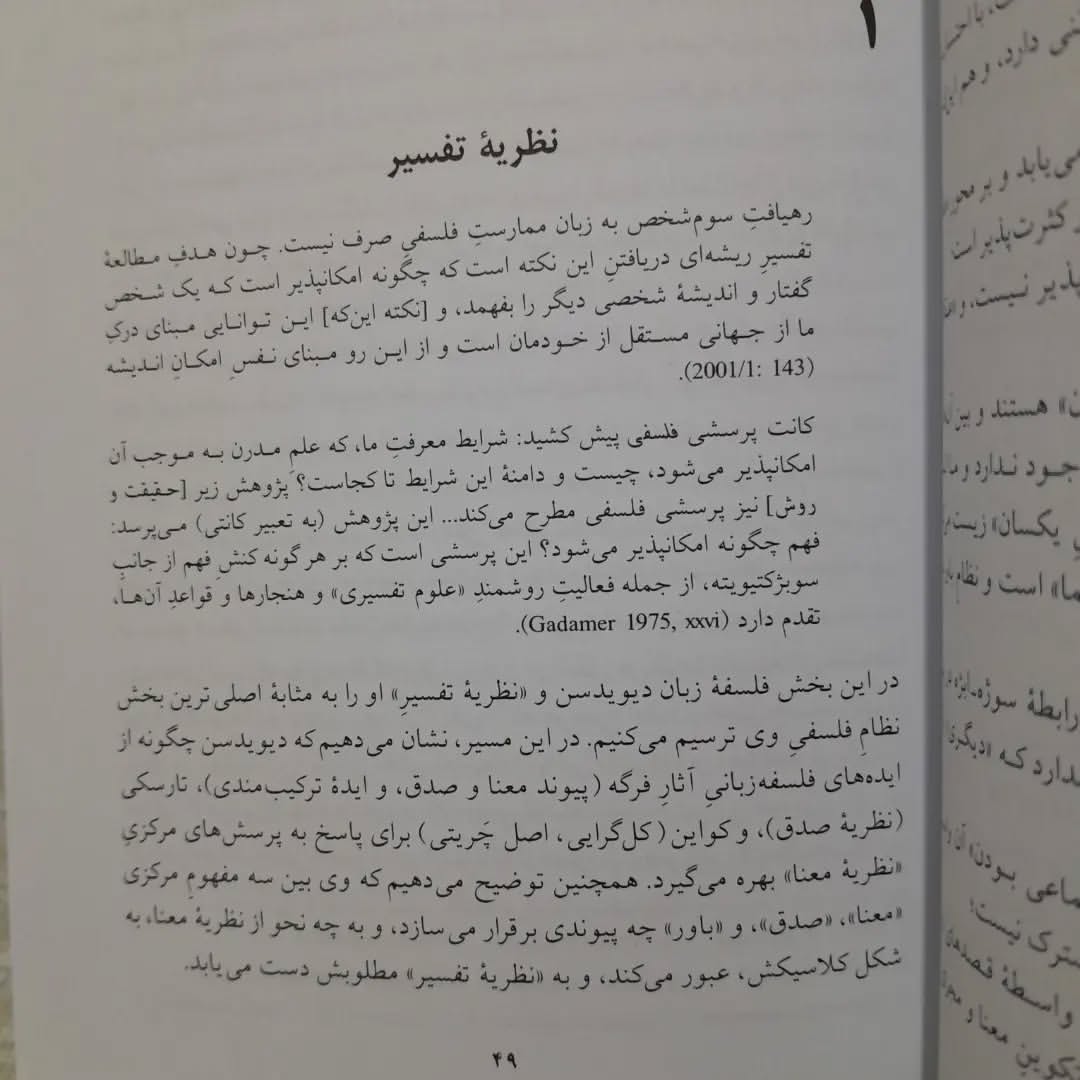 ۱
نظریهٔ تفسیر
رهیافتِ سوم‌شخص به زبان ممارستِ فلسفیِ صرف نیست. چون هدفِ مطالعهٔ
تفسیرِ ریشه‌ای دریافتنِ این نکته است که چگونه امکانپذیر است که یک شخص
گفتار و اندیشهٔ شخصی دیگر را بفهمد، و [نکته این‌که] این توانایی مبنای درکِ
ما از جهانی مستقل از خودمان است و از این رو مبنای نفسِ امکانِ اندیشه
(2001/1: 143).
کانت پرسشی فلسفی پیش کشید: شرایط معرفتِ ما، که علمِ مدرن به موجب آن
امکانپذیر می‌شود، چیست و دامنهٔ این شرایط تا کجاست؟ پژوهش زیر [حقیقت و
روش] نیز پرسشی فلسفی مطرح می‌کند... این پژوهش (به تعبیر کانتی) می‌پرسد:
فهم چگونه امکانپذیر می‌شود؟ این پرسشی است که بر هر گونه کنشِ فهم از جانبِ
سوبژکتیویته، از جمله فعالیتِ روشمندِ «علوم تفسیری» و هنجارها و قواعدِ آن‌ها،
تقدم دارد (Gadamer 1975, xxvi).
در این بخش فلسفهٔ زبان دیویدسن و «نظریهٔ تفسیرِ» او را به مثابهٔ اصلی‌ترین بخش
نظامِ فلسفیِ وی ترسیم می‌کنیم. در این مسیر، نشان می‌دهیم که دیویدسن چگونه از
ایده‌های فلسفه‌زبانیِ آثارِ فرگه (پیوند معنا و صدق، و ایدهٔ ترکیب‌مندی)، تارسکی
(نظریهٔ صدق)، و کواین (کل‌گرایی، اصل چَریتی) برای پاسخ به پرسش‌های مرکزیِ
«نظریهٔ معنا» بهره می‌گیرد. همچنین توضیح می‌دهیم که وی بین سه مفهومِ مرکزی
«معنا»، «صدق»، و «باور» چه پیوندی برقرار می‌سازد، و به چه نحو از نظریهٔ معنا، به
شکل کلاسیکش، عبور می‌کند، و به «نظریهٔ تفسیر» مطلوبش دست می‌یابد.
۴۹
دارد، و هم این
می‌یابد و بر محور
کثرت‌پذیر است
پذیر نیست، و
هستند و بیرن
ندارد و
یکسان»
است و نظام
رابطهٔ سوژه‌ـابژه
که «دیگری
بودن» آن
نیست؛
واسطهٔ قصدهای
معنا و